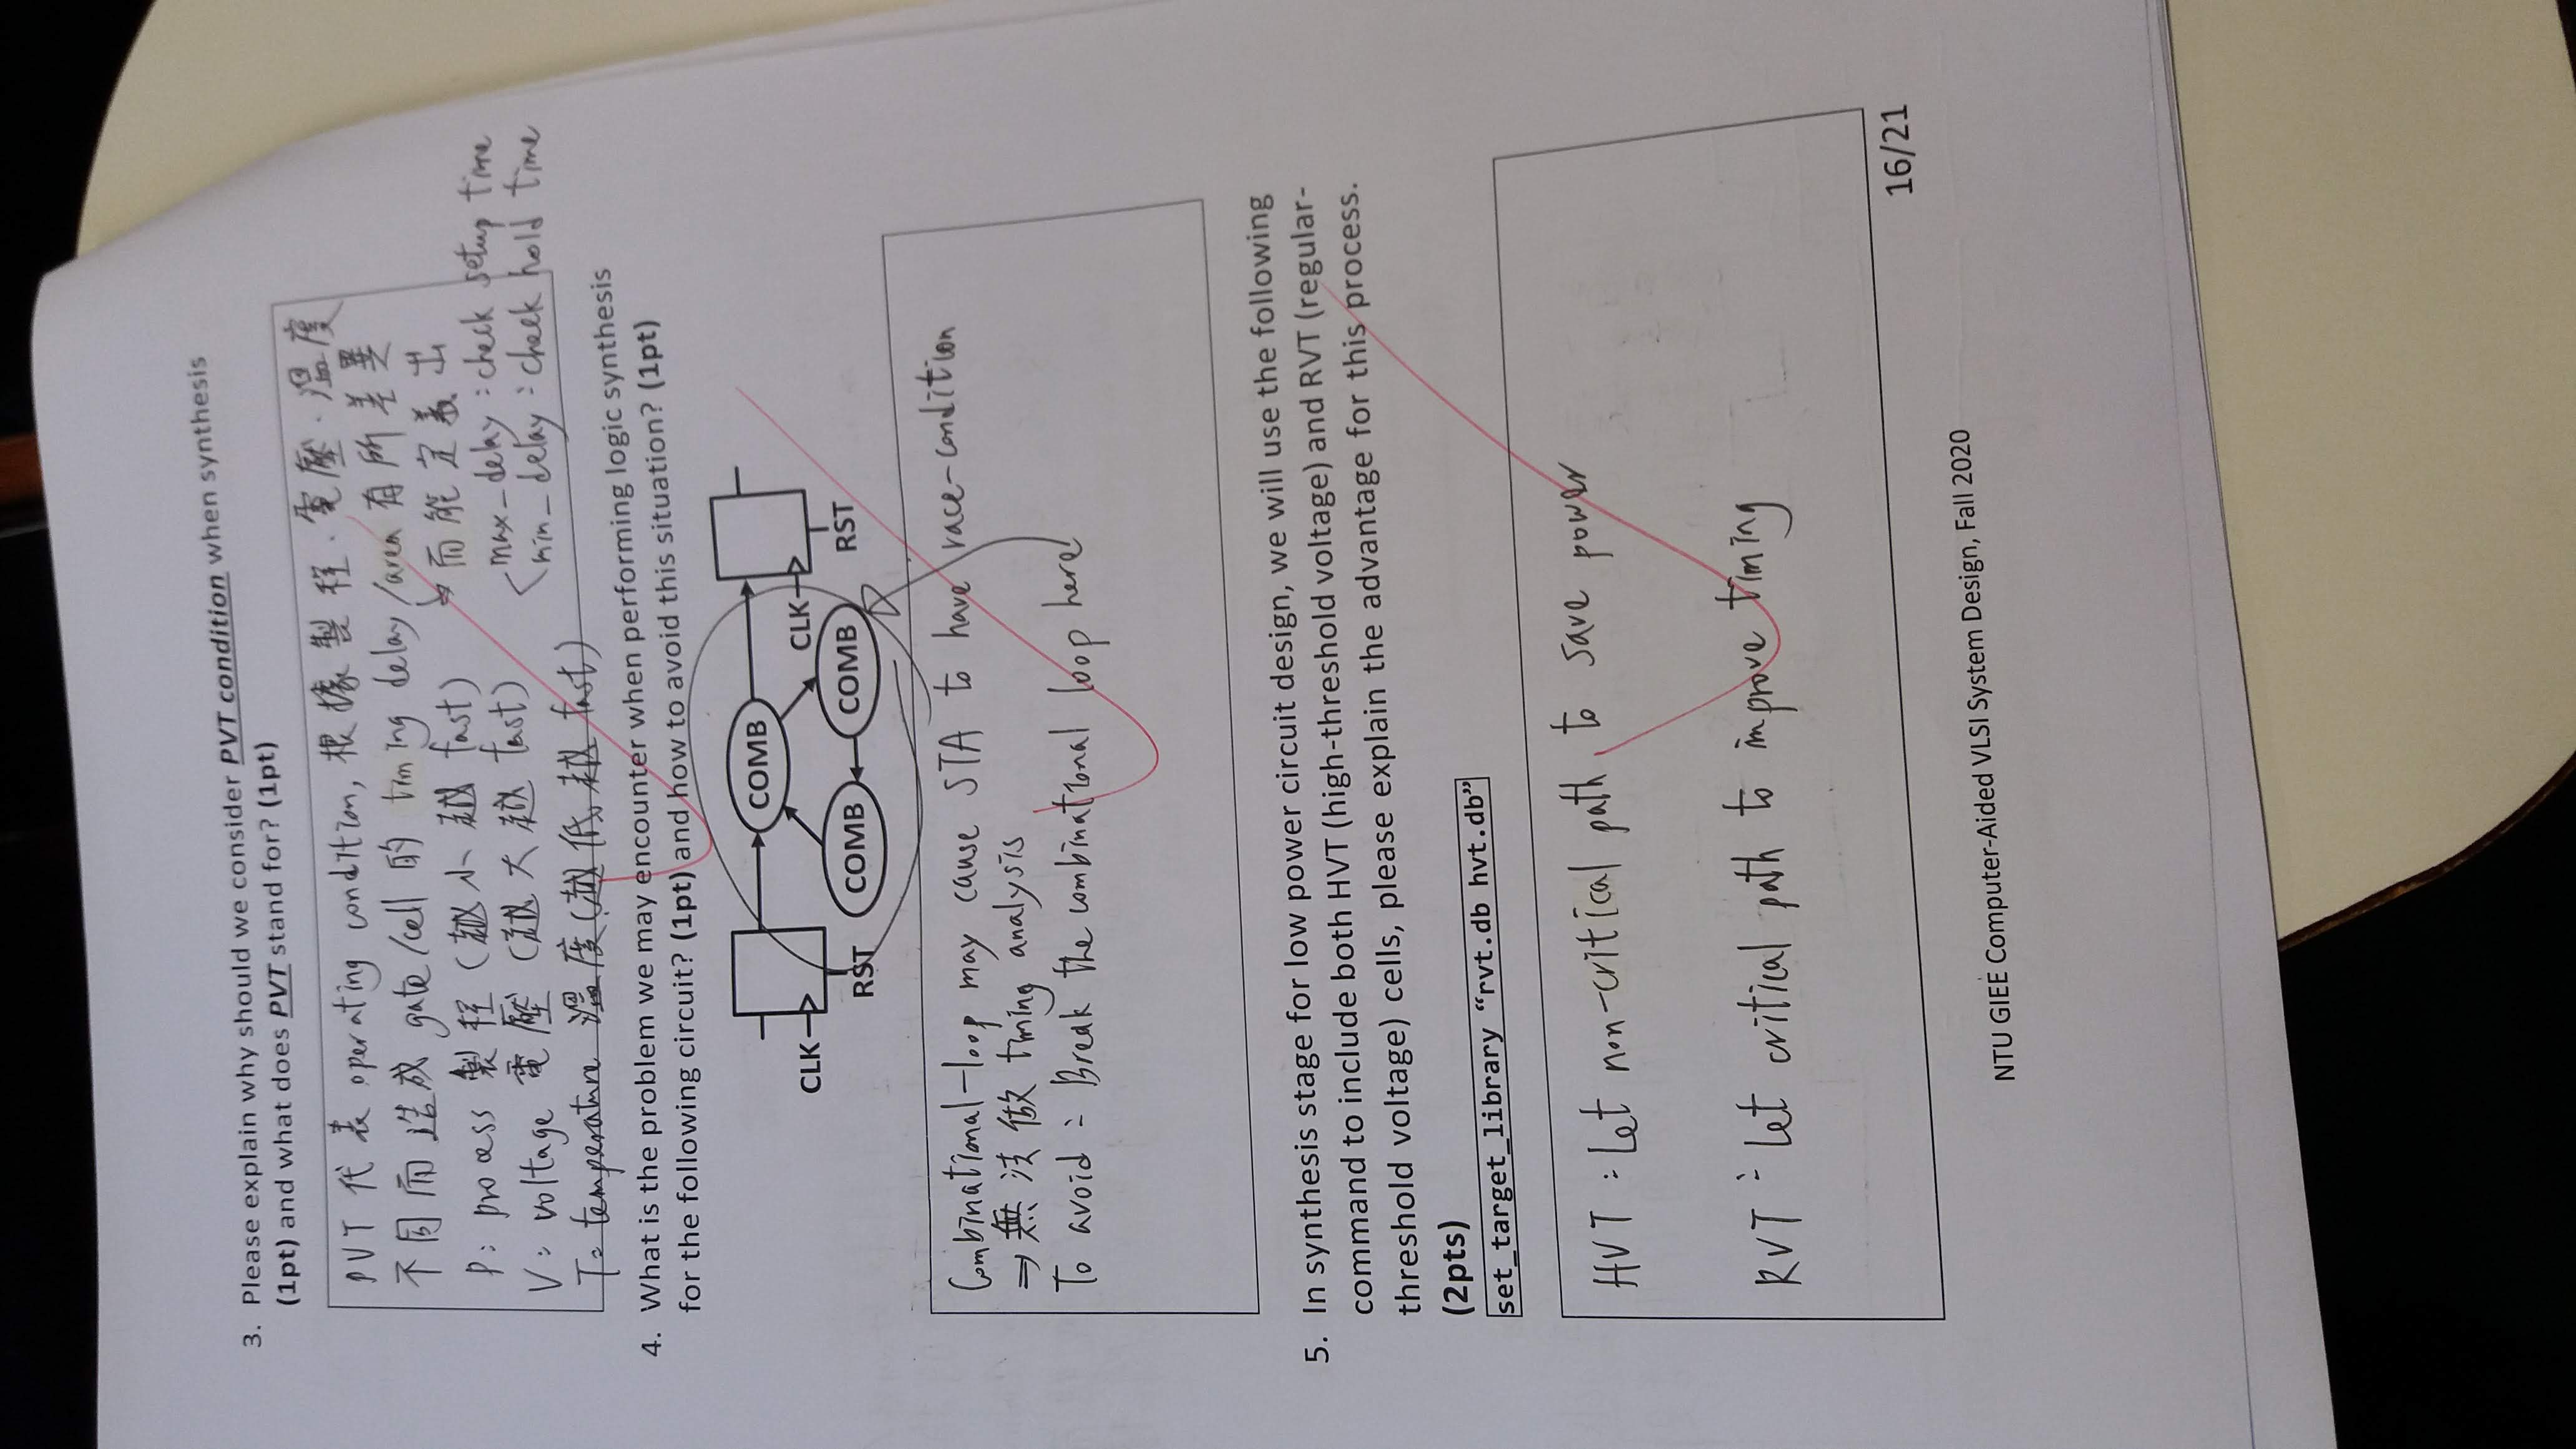 3. Please explain why should we consider PVT condition when synthesis
(1pt) and what does PVT stand for? (1pt)
PVT 代表 operating condition, 根據製程、電壓、溫度
不同而造成 gate/cell 的 timing delay/area 有所差異
↳ 而能定義出
P: process 製程 (越小越 fast)
max_delay : check setup time
V: voltage 電壓 (越大越 fast)
min_delay : check hold time
T: temperature 溫度 (越低越 fast)
4. What is the problem we may encounter when performing logic synthesis
for the following circuit? (1pt) and how to avoid this situation? (1pt)
COMB
CLK
CLK
RST
COMB
COMB
RST
Combinational-loop may cause STA to have race-condition
⇒ 無法做 timing analysis
To avoid : Break the combinational loop here
5. In synthesis stage for low power circuit design, we will use the following
command to include both HVT (high-threshold voltage) and RVT (regular-
threshold voltage) cells, please explain the advantage for this process.
(2pts)
set_target_library “rvt.db hvt.db”
HVT : Let non-critical path, to save power
RVT : Let critical path to improve timing
16/21
NTU GIEE Computer-Aided VLSI System Design, Fall 2020